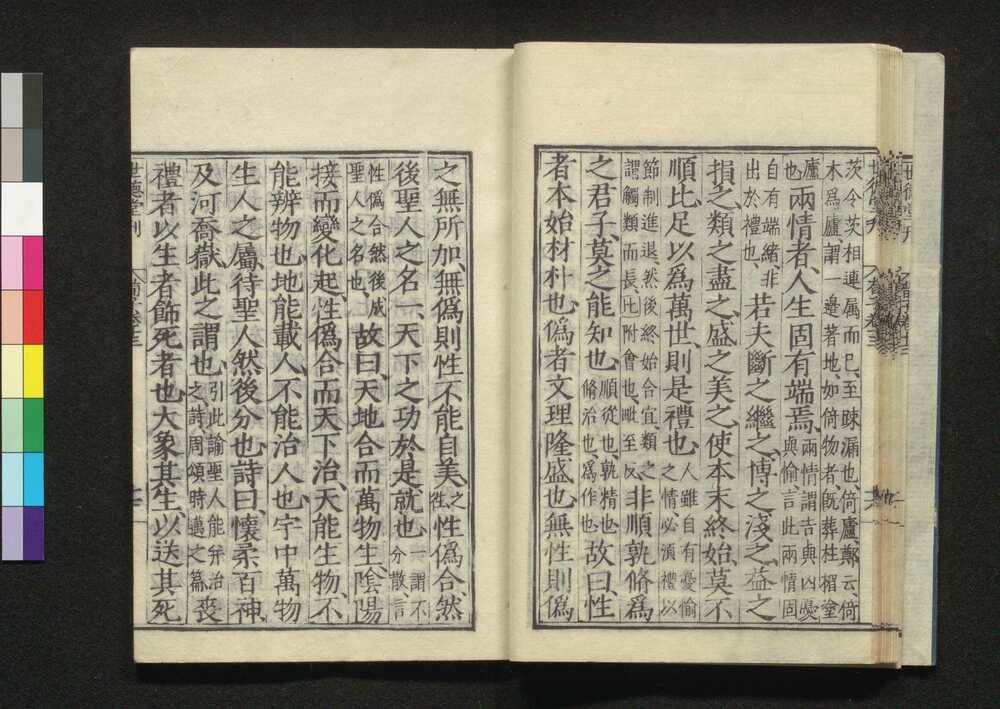 茨令茨相連属而已至踈漏也倚廬鄭云倚
木爲廬謂一邊著地如倚物者旣葬柱楣塗
廬也兩情者人生固有端焉兩情謂吉與凶憂與愉言此兩情固
自有端緒非出於禮也若夫斷之繼之博之淺之益之
損之類之盡之盛之美之使本末終始莫不
順比足以爲萬世則是禮也人雖自有憂愉之情必湏禮以
節制進退然後終始合宜類之謂觸類而長比附會也毗至反非順孰脩爲
之君子莫之能知也順從也孰精也脩治也爲作也故曰性
者本始材朴也僞者文理隆盛也無性則僞
之無所加無僞則性不能自美之性性僞合然
後聖人之名一天下之功於是就也一謂不分散言
性僞合然後成聖人之名也故曰天地合而萬物生隂陽
接而變化起性僞合而天下治天能生物不
能辨物也地能載人不能治人也宇中萬物
生人之屬待聖人然後分也詩曰懷柔百神
及河喬嶽此之謂也引此諭聖人能并治之詩周頌時邁之篇喪
禮者以生者飾死者也大象其生以送其死
世德堂刊